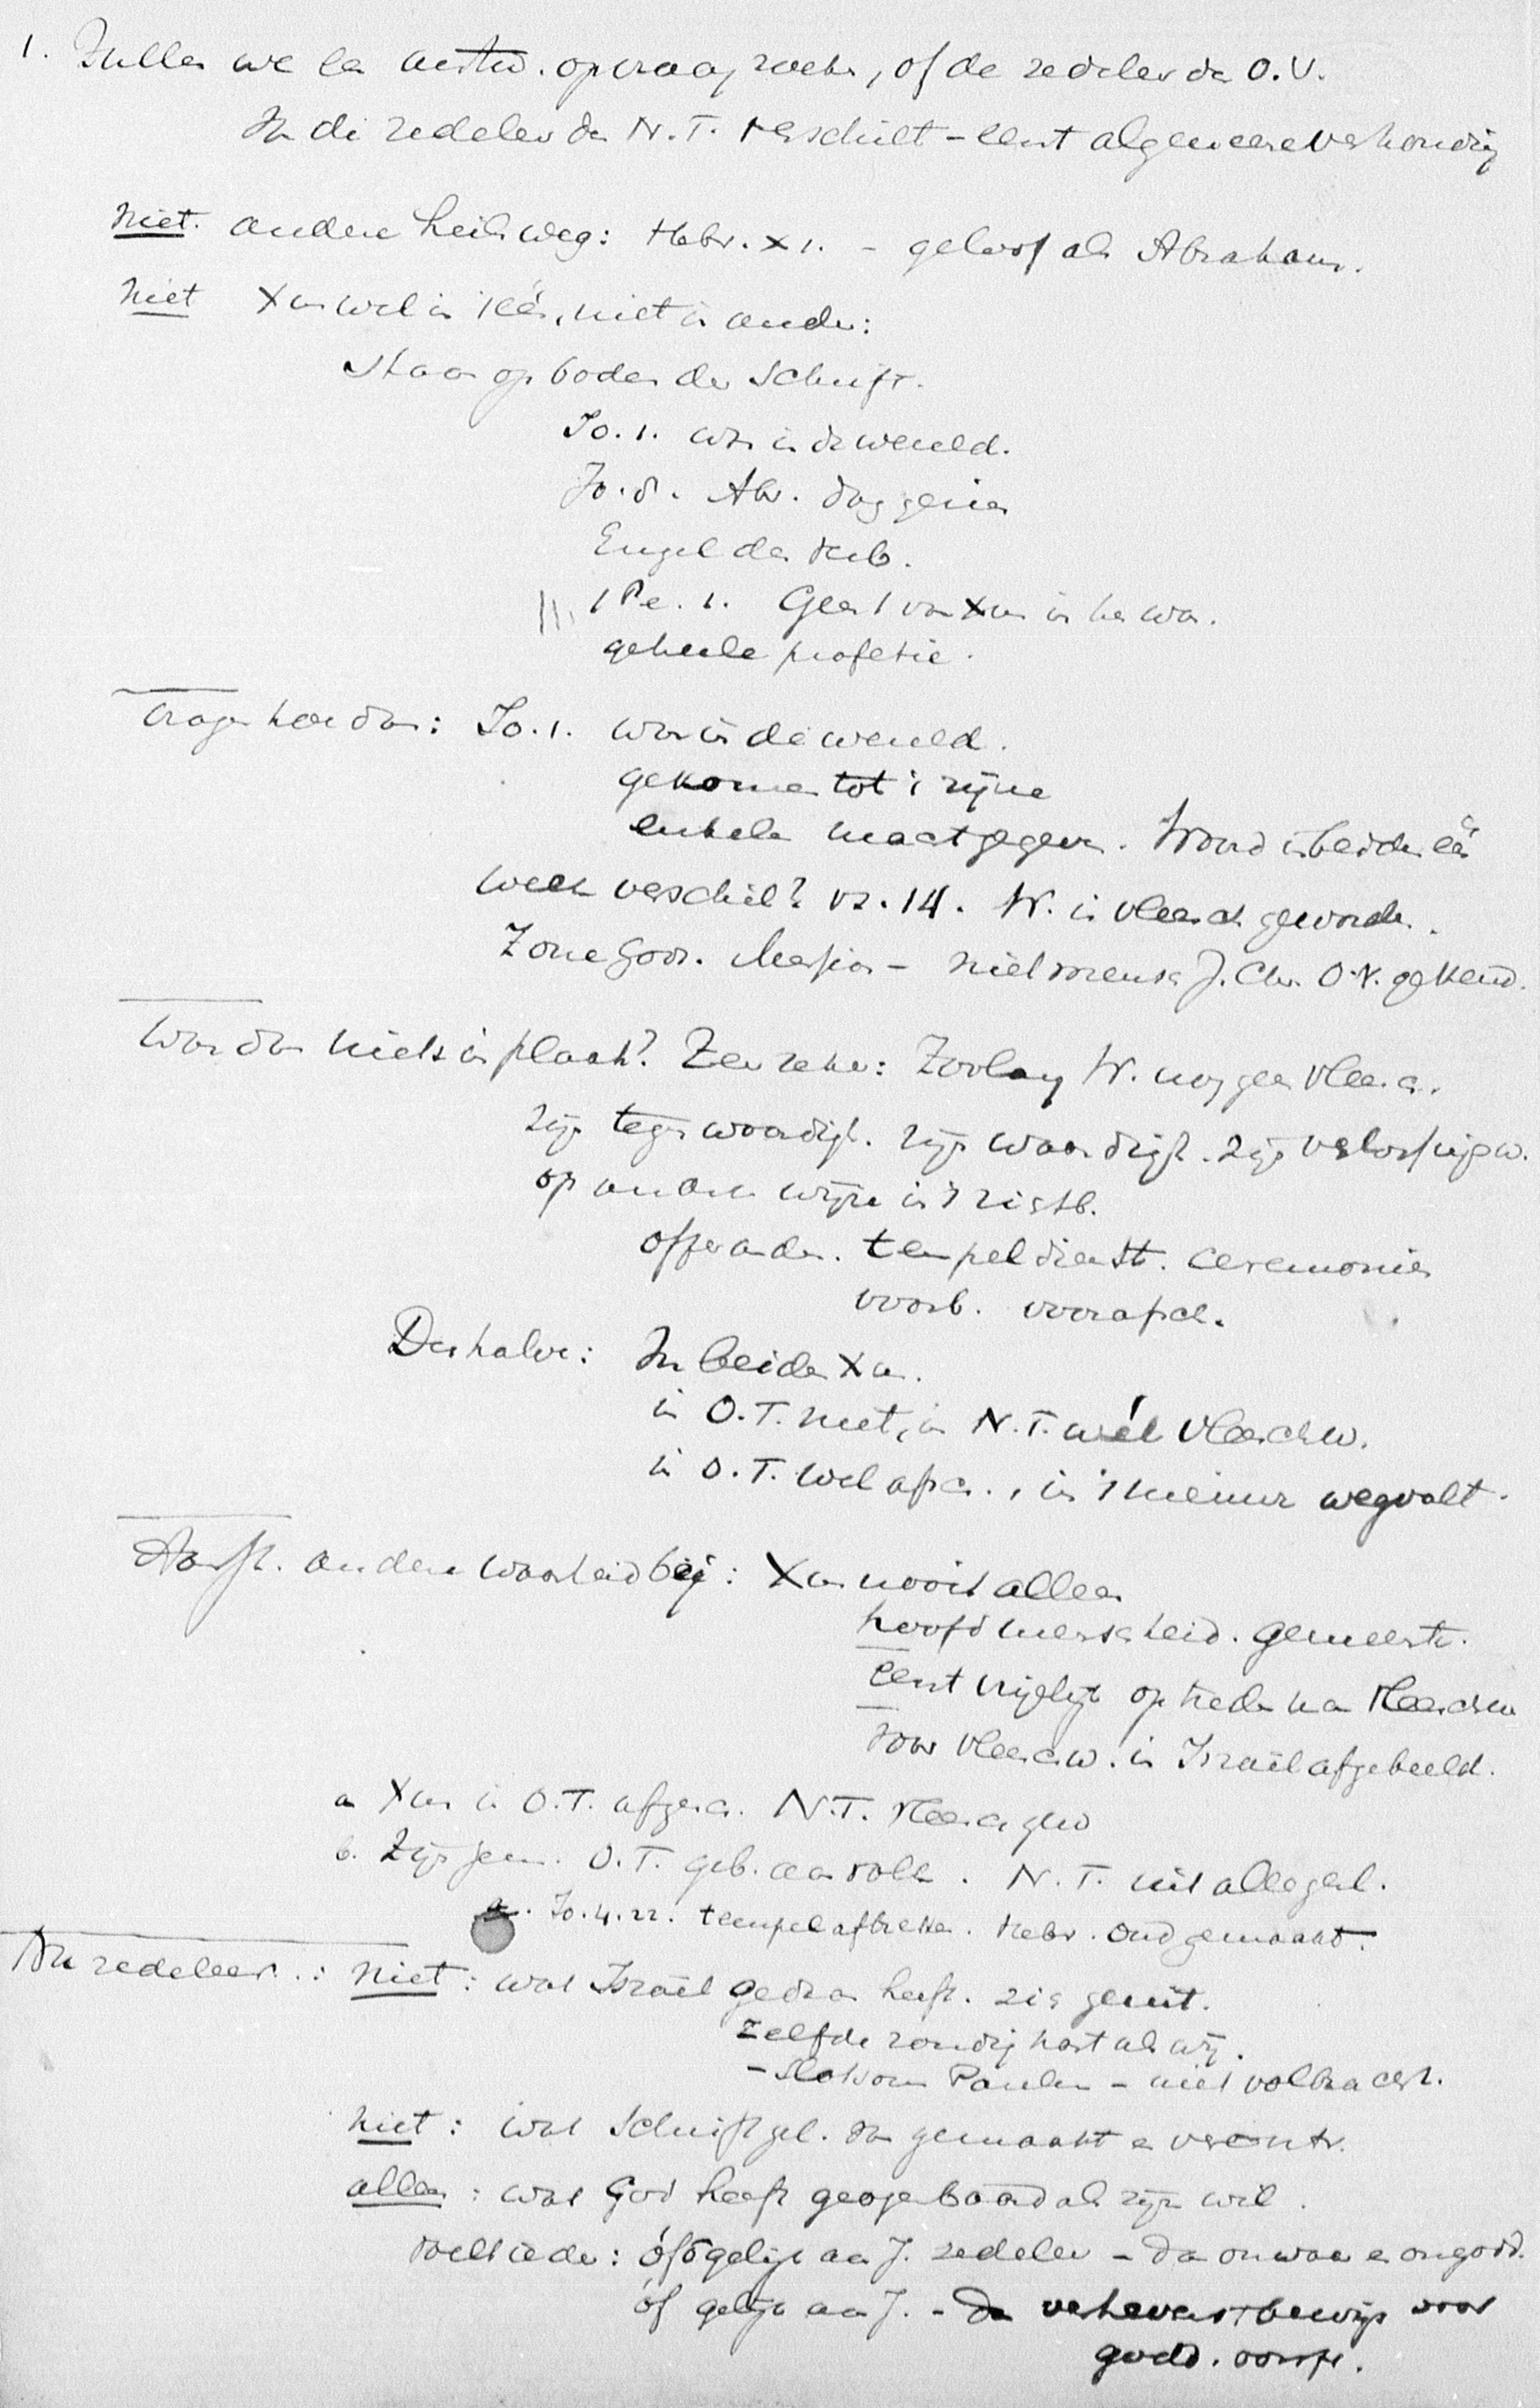 1. Zullen we en antw. op vraag zoeken, of de zedeleer da O.V.
In de zedeleer da N.T. verschilt - eerst algemeene verhouding
niet. andere heilsweg: Hebr. XI. - geloof als Abraham.
niet Xus wel in 1 één, niet in ander:
staan op bodem der Schrift.
Jo. 1. was in de wereld.
Jo. 8. Abr. dag gezien
Engel des Verb.
1 Pe. 1. Geest van Xus in hen was.
geheele profetie.
vragen hoe dan: Jo. 1. was in de wereld.
gekomen tot 't zijne
enkelen macht gegeven. Woord in beiden één
welk verschil? vs. 14. W. is vleesch geworden.
Zone Gods. Messias - niet mensch J. Chr. O.V. gekend.
Was dan niets in plaats? Zeer zeker: Zoolang W. nog geen vlee.
zijn tegenwoordigh. zijn waardigh. zijn verlossingsw.
op andere wijze in 't zichtb.
offeranden. tempeldienst. ceremoniën
voorb. voorafsch.
Derhalve: In beiden Xus.
in O.T. niet, in N.T. wél vleeschw.
in O.T. wel afsch., in 't nieuwe wegvalt.
andere waarheid bij: Xus nooit alleen
hoofd menschheid. gemeente.
eerst vrijelijk optreden na vleeschw
voor vleeschw. in Israël afgebeeld.
a Xus in O.T. afgesch. N.T. vleesch gew
b. Zijn gem. O.T. geb. aan volk. N.T. uit alle gesl.
Jo. 4.22. tempel afbreken. Hebr. oud gemaakt.
Nu zedeleer.: niet: wat Israël gedaan heeft. zich geuit.
zelfde zondig hart als wij.
- Slotsom Paulus - niet volbracht.
niet: wat Schriftgel. van gemaakt en verontr.
alleen: wat God heeft geopenbaard als zijn wil.
voelt ieder: óf ongelijk aan J. zedeleer - dan onwaar en ongodd.
óf gelijk aan J. - dan verhevenst bewijs voor
godd. oorspr.